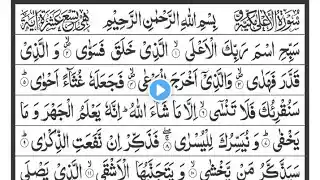 سُوْرَةُ الْاَعْلٰى مَكِّيَّةٌ بِسْمِ اللهِ الرَّحْمٰنِ الرَّحِيْمِ وَّهِيَ تِسْعَ عَشْرَةَ اٰيَةً
سَبِّحِ اسْمَ رَبِّكَ الْاَعْلَى الَّذِيْ خَلَقَ فَسَوّٰى وَالَّذِيْ
قَدَّرَ فَهَدٰى وَالَّذِيْ اَخْرَجَ الْمَرْعٰى فَجَعَلَهٗ غُثَآءً اَحْوٰى
سَنُقْرِئُكَ فَلَا تَنْسٰى اِلَّا مَا شَآءَ اللهُ اِنَّهٗ يَعْلَمُ الْجَهْرَ وَمَا
يَخْفٰى وَنُيَسِّرُكَ لِلْيُسْرٰى فَذَكِّرْ اِنْ نَّفَعَتِ الذِّكْرٰى
سَيَذَّكَّرُ مَنْ يَّخْشٰى وَيَتَجَنَّبُهَا الْاَشْقَى الَّذِيْ يَصْلَى